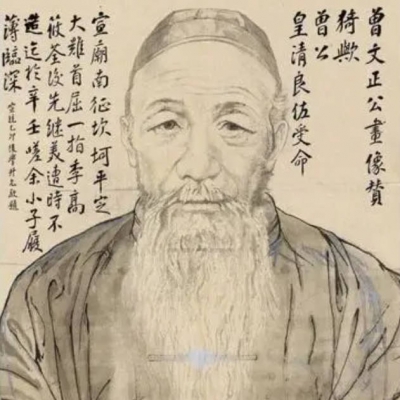 曾文正公畫像贊
猗歟
曾公
皇清良佐受命
宣廟南征坎坷平定
大難首屈一指李高
筱荃後先继美遭時不
造迄於辛壬嗟余小子履
薄臨深